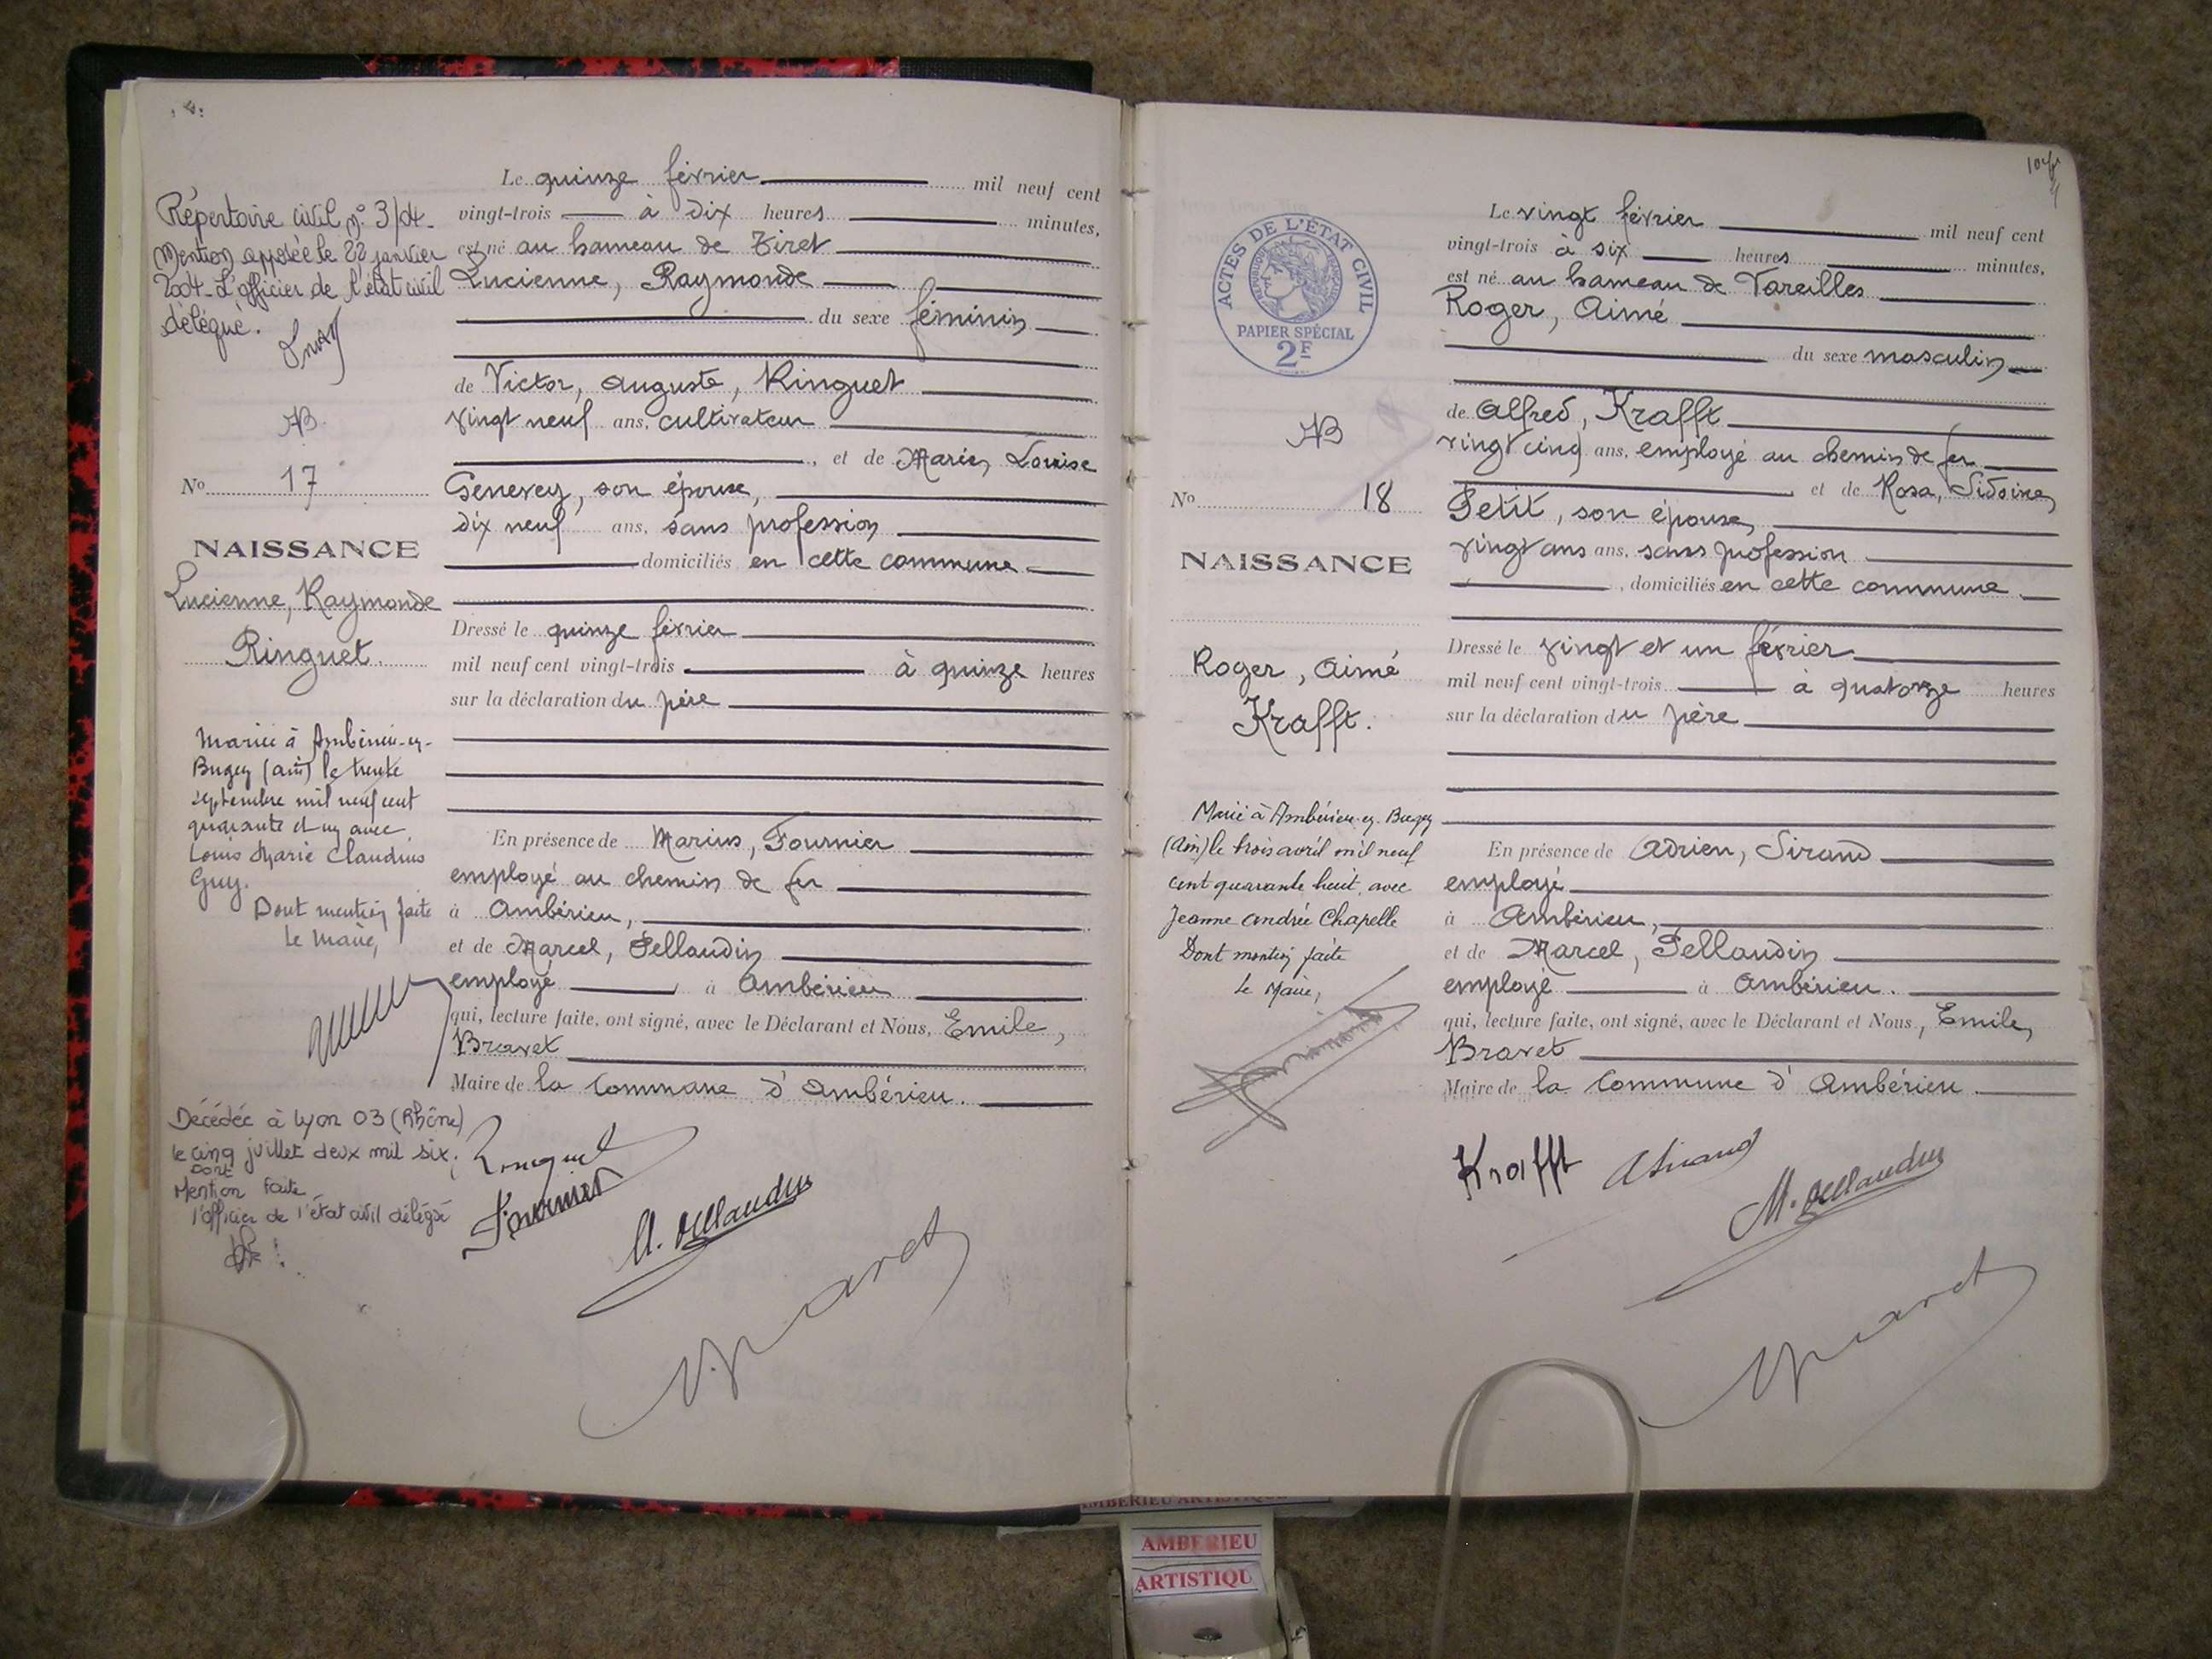 Répertoire civil n° 3/04.
Mention apposée le 22 janvier
2004. L'officier de l'état civil
délégué.
NB
No 17
NAISSANCE
Lucienne, Raymonde
Ringuet.
Mariée à Ambérieu-en-
Bugey (ain) le trente
septembre mil neuf cent
quarante et un avec
Louis Marie Claudius
Guy.
Dont mention faite
Le Maire,
Décédée à Lyon 03 (Rhône)
le cinq juillet deux mil six.
Dont
Mention faite
l'officier de l'état civil délégué
Le quinze février mil neuf cent
vingt-trois à dix heures minutes,
est né au hameau de Tiret
Lucienne, Raymonde
du sexe féminin
de Victor, Auguste, Ringuet
vingt neuf ans, cultivateur
, et de Marie, Louise
Genevey, son épouse,
dix neuf ans, sans profession
domiciliés en cette commune
Dressé le quinze février
mil neuf cent vingt-trois à quinze heures
sur la déclaration du père
En présence de Marius, Fournier
employé au chemin de fer
à Ambérieu,
et de Marcel, Pellaudin
employé à Ambérieu
qui, lecture faite, ont signé, avec le Déclarant et Nous, Emile,
Bravet
Maire de la Commune d'Ambérieu.
Ringuet
Fournier
M. Pellaudin
Bravet
ACTES DE L'ÉTAT CIVIL
RÉPUBLIQUE FRANÇAISE
PAPIER SPÉCIAL
2F
NB
No 18
NAISSANCE
Roger, Aimé
Krafft.
Marié à Ambérieu-en-Bugey
(Ain) le trois avril mil neuf
cent quarante huit, avec
Jeanne Andrée Chapelle
Dont mention faite
Le Maire,
Le vingt février mil neuf cent
vingt-trois à six heures minutes,
est né au hameau de Vareilles
Roger, Aimé
du sexe masculin
de Alfred, Krafft
vingt cinq ans, employé au chemin de fer
et de Rosa, Sidoine,
Petit, son épouse,
vingt ans ans, sans profession
, domiciliés en cette commune
Dressé le vingt et un février
mil neuf cent vingt-trois à quatorze heures
sur la déclaration du père
En présence de Adrien, Sirand
employé
à Ambérieu,
et de Marcel, Pellaudin
employé à Ambérieu.
qui, lecture faite, ont signé, avec le Déclarant et Nous, Emile,
Bravet
Maire de la Commune d'Ambérieu.
Krafft
A Sirand
M. Pellaudin
Bravet
AMBERIEU ARTISTIQUE
AMBERIEU
ARTISTIQU